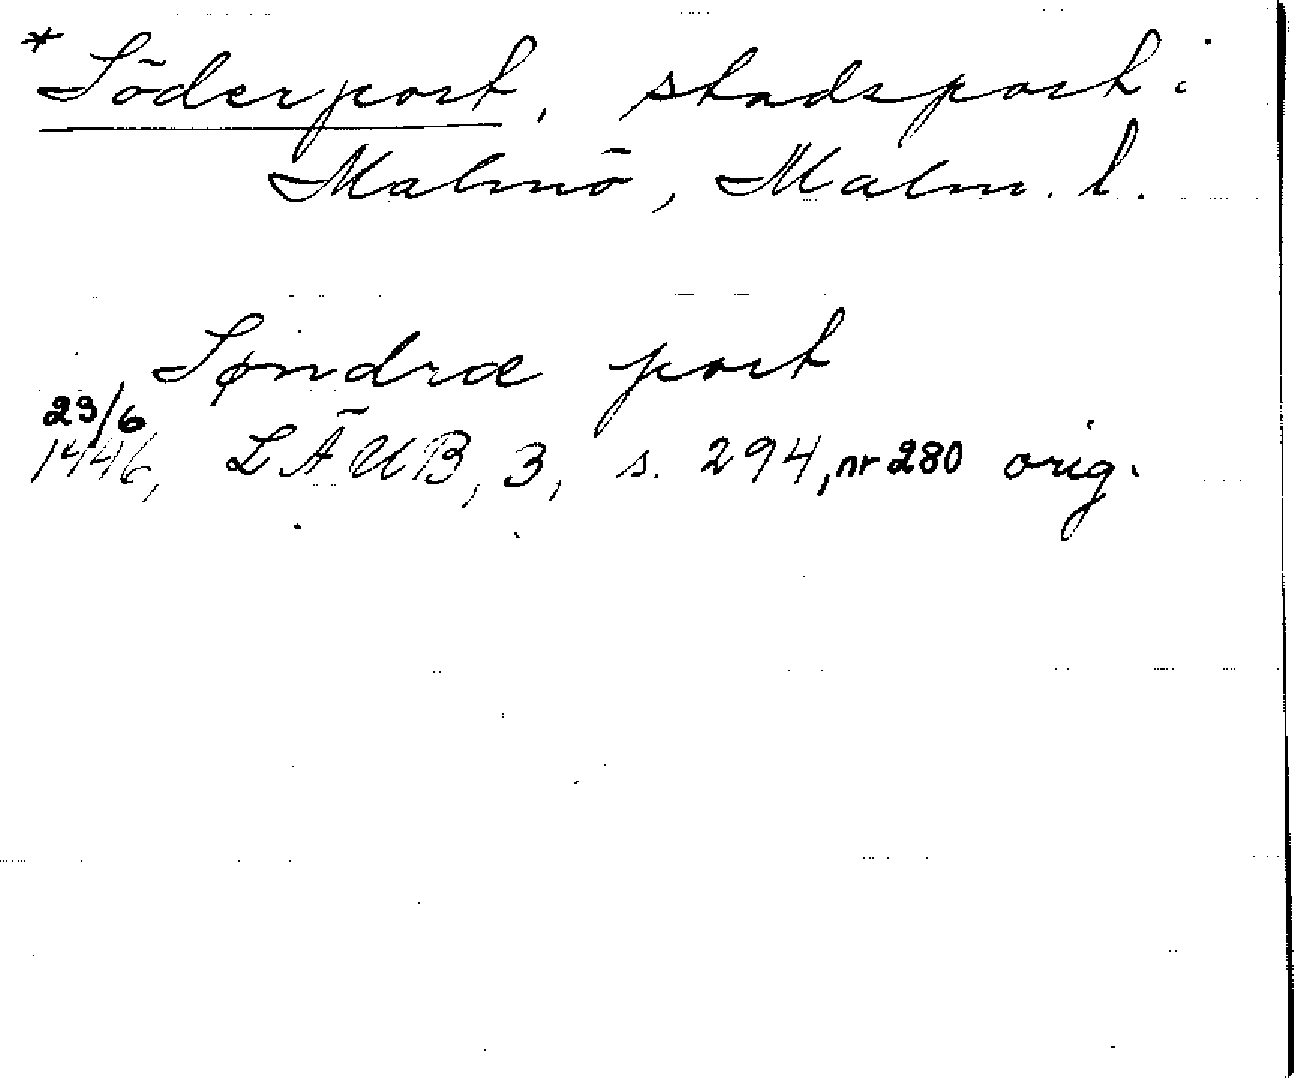 * Söderport, stadsport i
Malmö, Malm. l.
Søndræ port
23/6
1446, LÄUB, 3, s. 294, nr 280 orig.